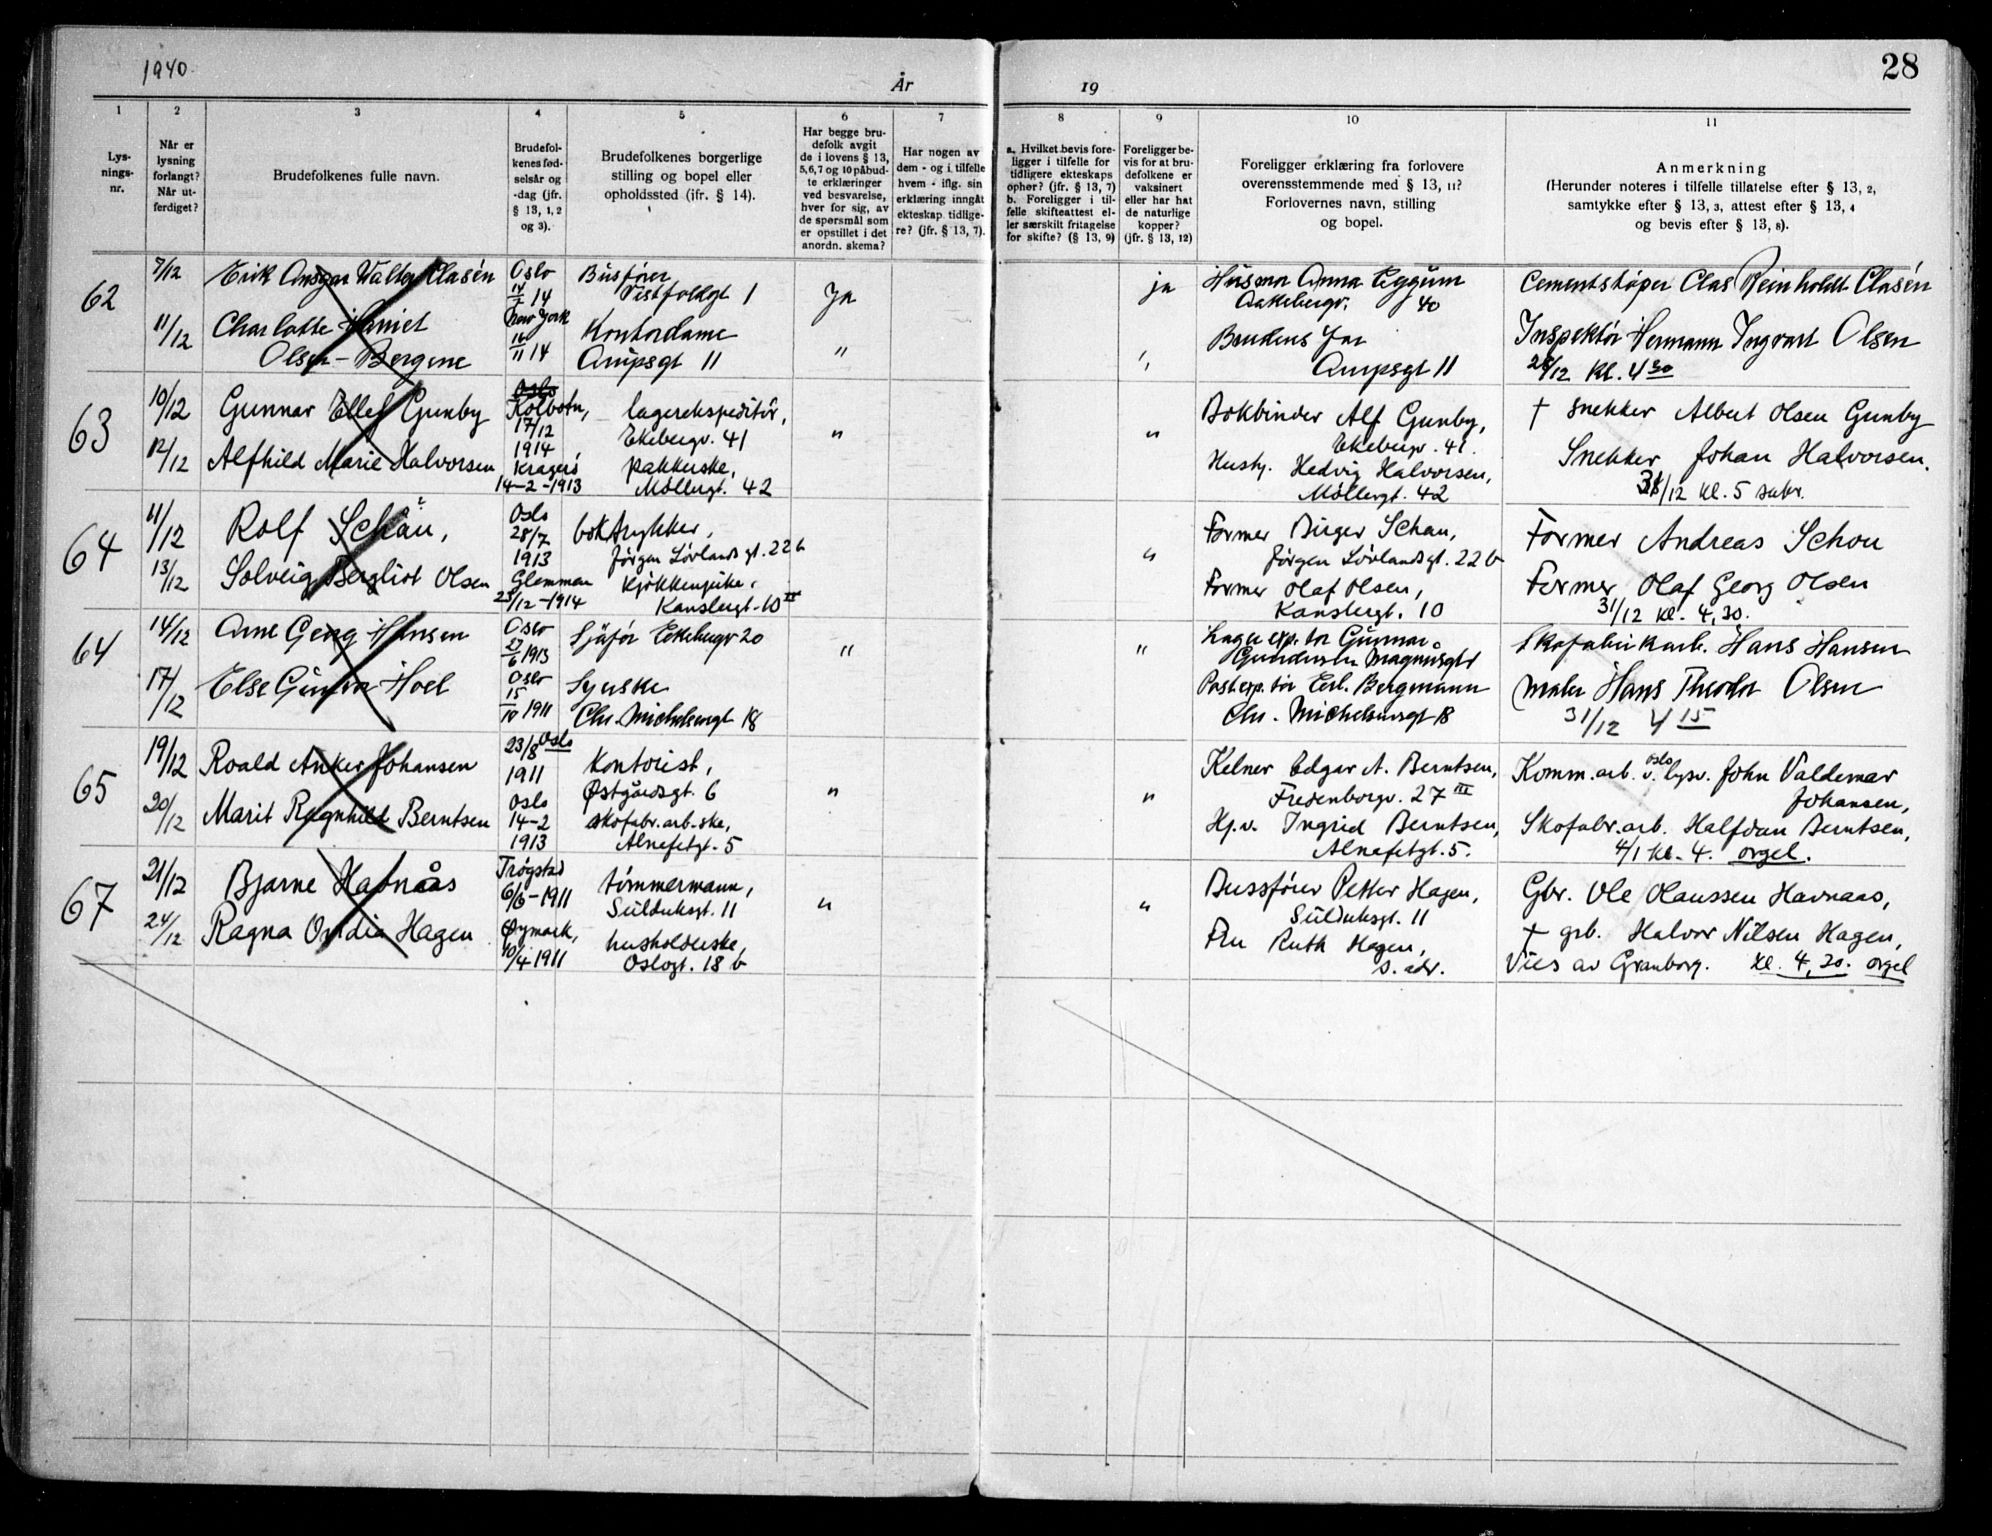 1940
År
19
28
1
2
3
4
5
6
7
8
9
10
11
Lys-
nings-
nr.
Når er
lysning
forlangt?
Når ut-
ferdiget?
Brudefolkenes fulle navn.
Brudefol-
kenes fød-
selsår og
-dag (jfr.
§ 13, 1, 2
og 3).
Brudefolkenes borgerlige
stilling og bopel eller
opholdssted (ifr. § 14).
Har begge bru-
defolk avgit
de i lovens § 13,
5,6,7 og 10 påbud-
te erklæringer
ved besvarelse,
hver for sig, av
de spørsmål som
er opstillet i det
anordn. skema?
Har nogen av
dem - og i tilfelle
hvem - iflg. sin
erklæring inngått
ekteskap tidlige-
re? (jfr. § 13, 7).
a. Hvilket bevis fore-
ligger i tilfelle for
tidligere ekteskaps
ophør? (jfr. § 13, 7)
b. Foreligger i til-
felle skifteattest el-
ler særskilt fritagelse
for skifte? (§ 13, 9)
Foreligger be-
vis for at bru-
defolkene er
vaksinert
eller har hat
de naturlige
kopper?
(jfr. § 13, 12)
Foreligger erklæring fra forlovere
overensstemmende med § 13, 11?
Forlovernes navn, stilling
og bopel.
Anmerkning
(Herunder noteres i tilfelle tillatelse efter § 13, 2,
samtykke efter § 13, 3, attest efter § 13, 4
og bevis efter § 13, 8).
62
7/12
Erik Ansgar Walter Clasén
Oslo
14/7 14
Busfører
Vestfoldgt 1
Ja
ja
Husmor Anna Eggum
Aakebergv. 40
Cementstøper Clas Reinholdt Clasén
11/12
Charlotte Harriet
Olsen-Bergene
New York
16/11 14
Kontordame
Arupsgt 11
"
"
Brudens Far
Arupsgt 11
Inspektør Hermann Ingvart Olsen
28/12 Kl. 4 30
63
10/12
Gunnar Ellef Gunby
Oslo
Kolbotn,
17/12
1914
lagerekspeditør,
Ekebergv. 41
"
"
Bokbinder Alf Gunby,
Ekebergv. 41.
† snekker Albert Olsen Gunby
12/12
Alfhild Marie Halvorsen
Kragerø
14-2-1913
pakkerske,
Møllergt. 42
Hustr. Hedvig Halvorsen,
Møllergt. 42
Snekker Johan Halvorsen.
31/12 kl. 5
64
11/12
Rolf Schau,
Oslo
28/7
1913
boktrykker,
Jørgen Løvlands gt. 22 b
"
Former Birger Schau,
Jørgen Løvlandsgt. 22 b
Former Andreas Schou
13/12
Solveig Bergliot Olsen
Glemmen
23/12-1914
kjøkkenpike,
Kanslergt. 10 II
Former Olaf Olsen,
Kanslergt. 10
Former Olaf Georg Olsen
31/12 kl. 4,30.
64
14/12
Arne Georg Hansen
Oslo
27/6 1913
Sjåfør Ekebergv 20
"
"
Lager exp.tør Gunnar
Gundersen Magnusgt
Skofabrikarb. Hans Hansen
17/12
Else Gunvor Hoel
Oslo
15/10 1911
Syerske
Chr. Michelsensgt 18
Postexp.tør Erl. Bergmann
Chr. Michelsensgt 18
Maler Hans Theodor Olsen
31/12 4 15
65
19/12
Roald Anker Johansen
23/8 Oslo
1911
Kontorist,
Østgårdsgt. 6
"
"
Kelner Edgar A. Berntsen,
Fredenborgv. 27 III
Komm.arb. v. Oslo lysv. John Valdemar
Johansen,
20/12
Marit Ragnhild Berntsen
Oslo
14-2
1913
skofabr.arb.ske,
Alnafetgt. 5
Hj.v. Ingrid Berntsen,
Alnafetgt. 5.
Skofabr.arb. Halfdan Berntsen,
4/1 kl. 4. orgel.
67
21/12
Bjarne Havnås
Trøgstad
6/6-1911
tømmermann,
Sulduksgt. 11
"
"
Bussfører Petter Hagen,
Sulduksgt. 11
Gbr. Ole Olaussen Havnaas,
24/12
Ragna Ovidia Hagen
Øymark,
10/4-1911
husholderske,
Oslogt. 18 b
Fru Ruth Hagen,
s. adr.
† grb. Halvor Nilsen Hagen,
Vies av Granborg. Kl. 4,30. orgel